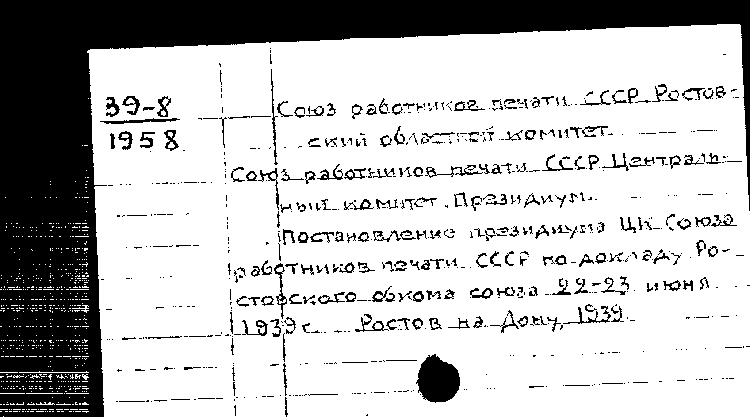 39-8
1958
Союз работников печати СССР. Ростов-
ский областной комитет.
Союз работников печати СССР. Централь-
ный комитет. Президиум.
Постановление президиума ЦК Союза
работников печати СССР по докладу Ро-
стовского обкома союза 22-23 июня
1939 г. Ростов на Дону, 1939.